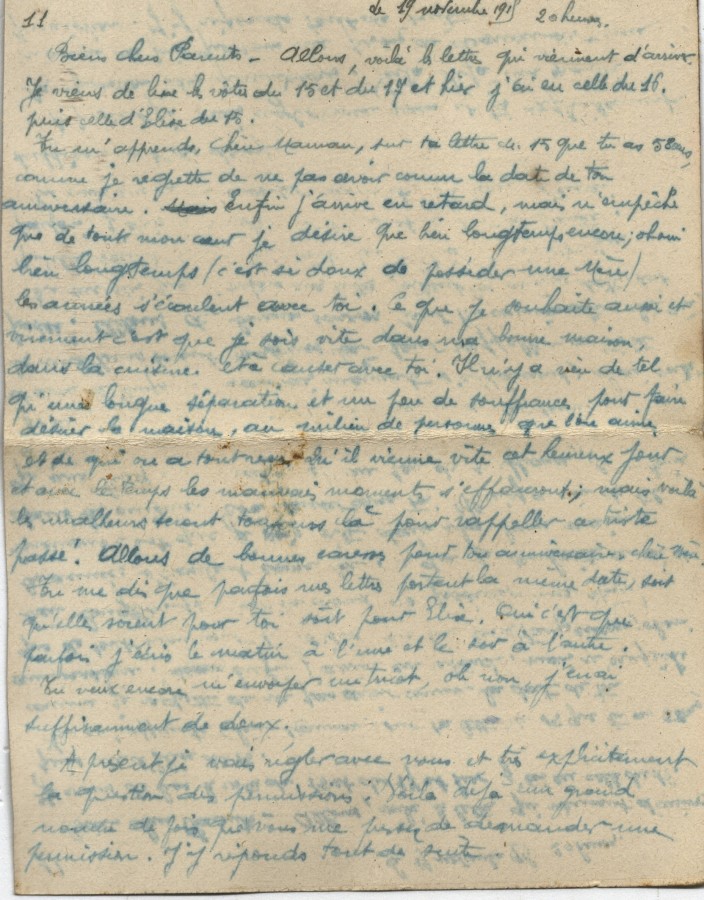 11
le 19 novembre 1915 20 heures.
Biens chers Parents - Allons, voilà les lettres qui viennent d'arriver.
Je viens de lire les vôtres du 15 et du 17 et hier j'ai eu celle du 16.
puis celle d'Elise du 15.
Tu m'apprends, chère Maman, sur ta lettre du 15 que tu as 58 ans,
comme je regrette de ne pas avoir connu la date de ton
anniversaire. Mais Enfin j'arrive en retard, mais n'empêche
que de tout mon cœur je désire que bien longtemps encore, oh oui
bien longtemps (c'est si doux de posséder une Mère)
les années s'écoulent avec toi. Ce que je souhaite aussi et
vivement c'est que je sois vite dans ma bonne maison,
dans la cuisine et à causer avec toi. Il n'y a rien de tel
qu'une longue séparation et un peu de souffrances pour faire
désirer la maison, au milieu de personnes que l'on aime
et de qui on a tout reçu. Qu'il vienne vite cet heureux jour
et avec le temps les mauvais moments s'effaceront; mais voilà
les malheurs seront toujours là pour rappeller ce triste
passé. Allons de bonnes caresses pour ton anniversaire, chère Mère.
Tu me dis que parfois mes lettres portent la même date, soit
qu'elles soient pour toi soit pour Elise. Oui c'est que
parfois j'écris le matin à l'une et le soir à l'autre.
Tu veux encore m'envoyer un tricot, oh non, j'en ai
suffisamment de deux.
A présent je vais régler avec vous et très explicitement
la question des permissions. Voilà déjà un grand
nombre de fois que vous me de demander une
permission. J'y réponds tout de suite.